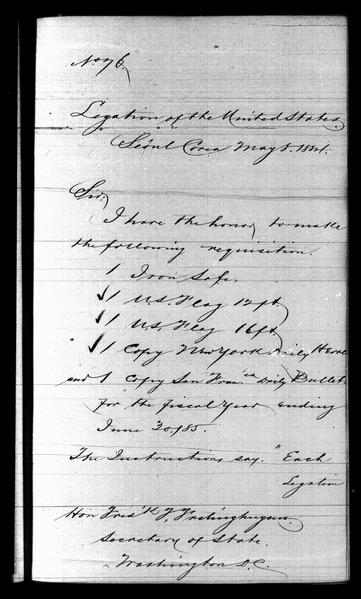 No 76.
Legation of the United States.
Seoul Corea May 8. 1884.
Sir:
I have the honor, to make
the following requisition.
1 Iron Safe.
1 U.S. Flag 12 ft
1 U.S. Flag 16 ft
1 Copy New York Daily
and 1 Copy San Fran.ca Daily Bullet
for the fiscal year ending
June 30./85.
The Instructions say. "Each
Legation
Hon Fred'k T. Frelinghuysen.
Secretary of State.
Washington D.C.